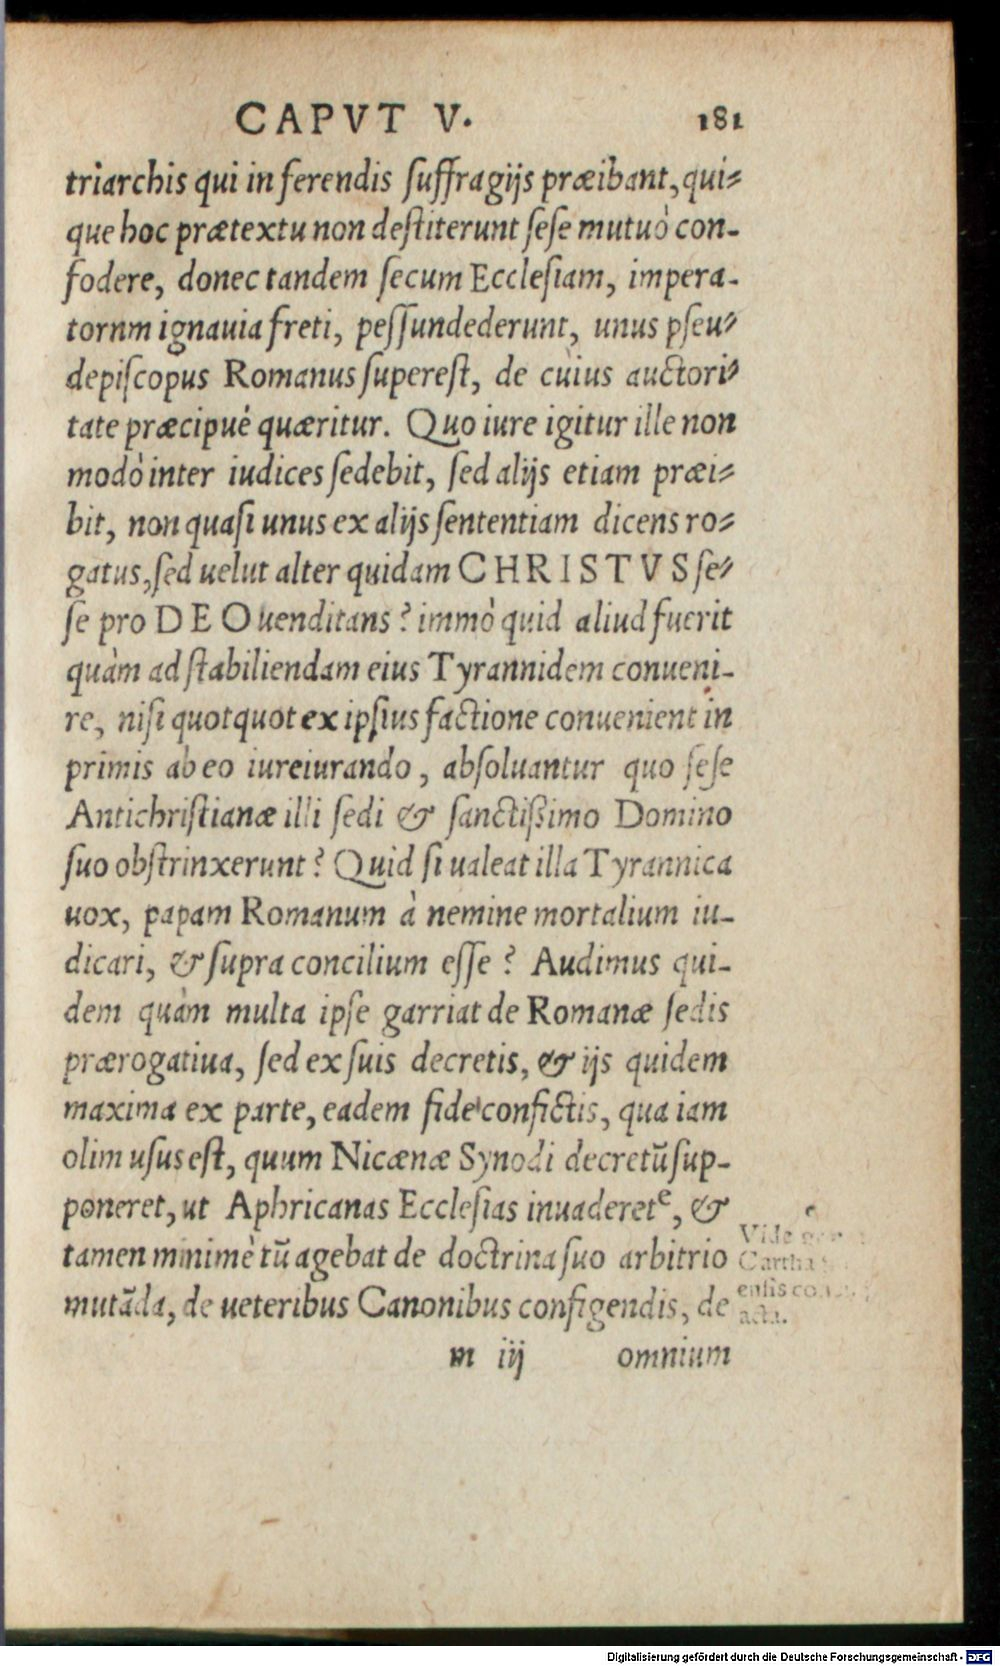 CAPVT V. 181
triarchis qui in ferendis suffragijs præibant, qui-
que hoc prætextu non destiterunt sese mutuò con-
fodere, donec tandem secum Ecclesiam, impera-
tornm ignauia freti, pessundederunt, unus pseu-
depiscopus Romanus superest, de cùius auctori-
tate præcipuè quæritur. Quo iure igitur ille non
modò inter iudices sedebit, sed alijs etiam præi-
bit, non quasi unus ex alijs sententiam dicens ro-
gatus, sed uelut alter quidam CHRISTVS se-
se pro DEO uenditans? immò quid aliud fuerit
quàm ad stabiliendam eius Tyrannidem conueni-
re, nisi quotquot ex ipsius factione conuenient in
primis ab eo iureiurando, absoluantur quo sese
Antichristianæ illi sedi & sanctißimo Domino
suo obstrinxerunt? Quid si ualeat illa Tyrannica
uox, papam Romanum à nemine mortalium iu-
dicari, & supra concilium esse? Audimus qui-
dem quàm multa ipse garriat de Romanæ sedis
prærogatiua, sed ex suis decretis, & ijs quidem
maxima ex parte, eadem fide confictis, qua iam
olim usus est, quum Nicænæ Synodi decretũ sup-
poneret, ut Aphricanas Ecclesias inuaderet e, &
tamen minimè tũ agebat de doctrina suo arbitrio
mutãda, de ueteribus Canonibus configendis, de
e
Vide
Cartha
ensis
acta.
m iij omnium
Digitalisierung gefördert durch die Deutsche Forschungsgemeinschaft - DFG